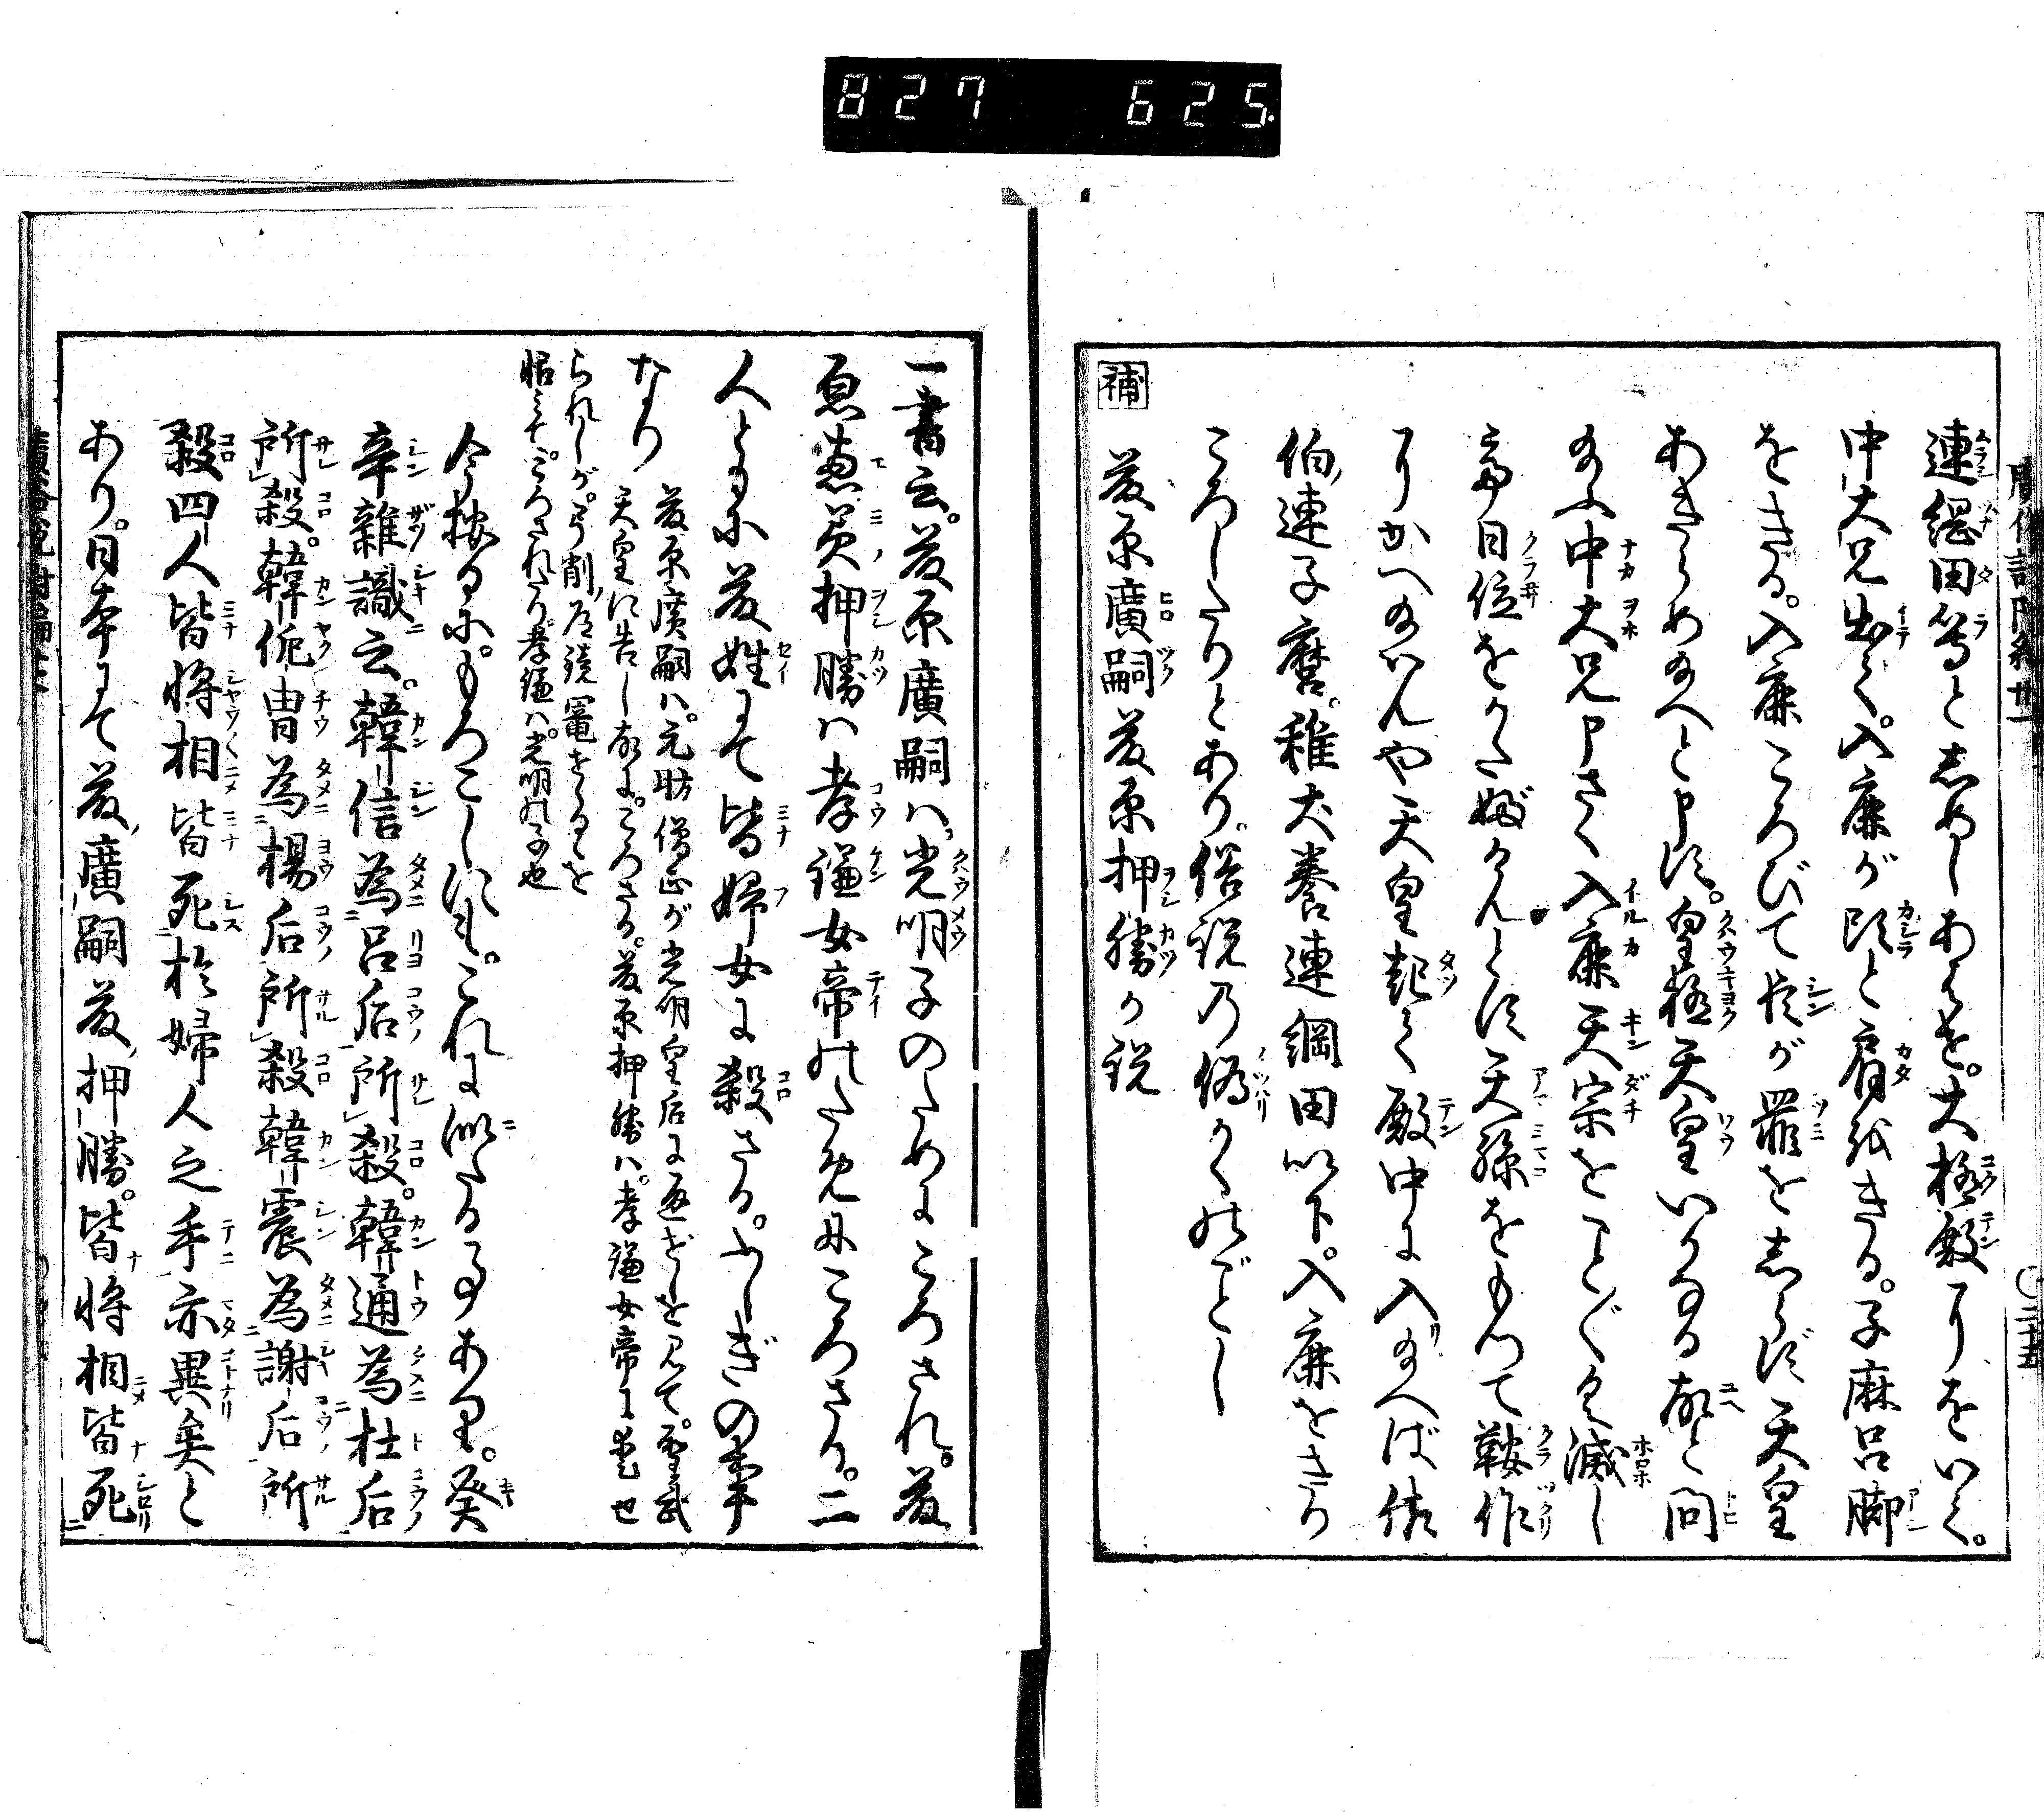 827 625
連綱田等と志めしあはせ。大極殿にをいて。
中大兄出て。入鹿が頭と肩をきる。子麻呂脚
をきる。入鹿ころびて臣が罪を志らず天皇
あきらめ給へと申す。皇極天皇いかなる故と問
給ふ中大兄申さく入鹿天宗をこと〴〵く滅し
帝日位をかたぶけんとす天孫をもつて鞍作
にかへ給はんや天皇起て殿中に入給へば佐
伯連子麿。稚犬養連綱田以下。入鹿をきり
ころしたりとあり。俗説乃偽かくのごとし
補 藤原廣嗣藤原押勝か説
一書云。藤原廣嗣ハ。光明子のためにころされ。藤
原惠美押勝ハ孝謙女帝のために。ころさる。二
人ともに藤姓にて皆婦女に殺さる。ふしぎの事
なり
藤原廣嗣ハ。元昉僧正が光明皇后に通ぜしを見て。聖武
天皇に告し故に。ころさる。藤原押勝ハ。孝謙女帝に寵せ
られしが。弓削道鏡寵をうるを
妬みて。ころされたり。孝謙ハ。光明の子也
今按るに。もろこしにも。これに似たる事あり。癸
辛雜識云。韓信為呂后所殺。韓通為杜后
所殺。韓侂冑為楊后所殺韓震為謝后所
殺四人皆将相皆死於婦人之手亦異矣と
あり。日本にて藤廣嗣藤押勝。皆将相皆死